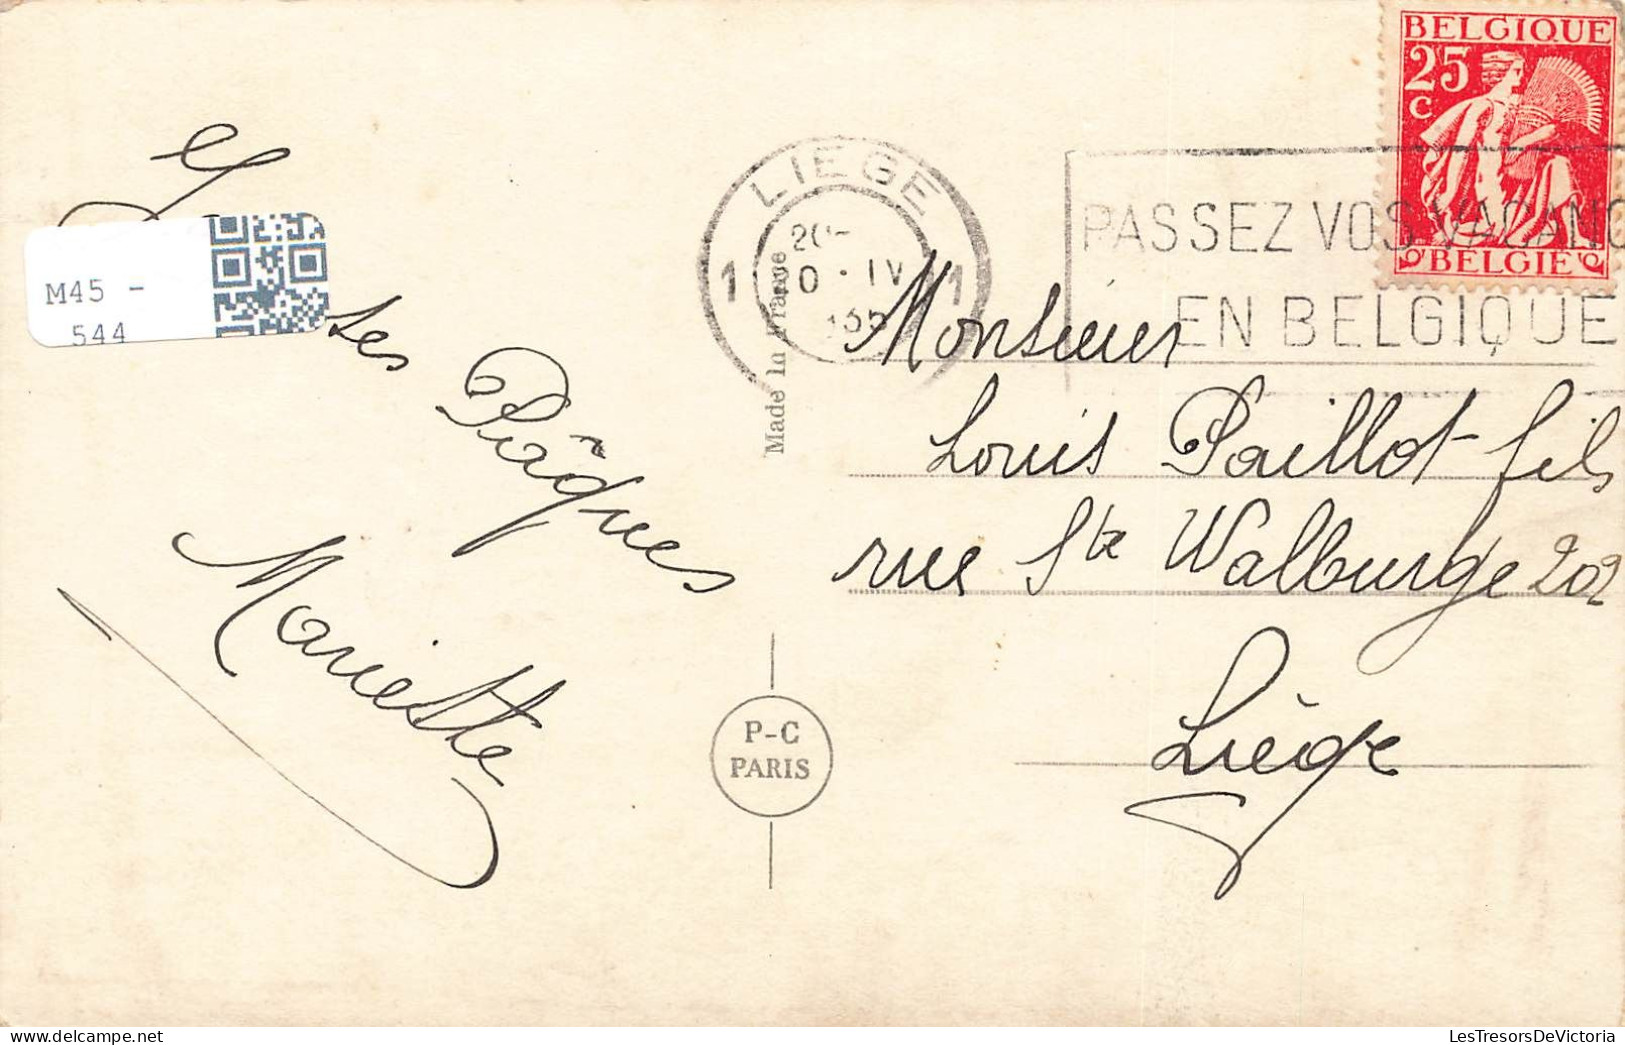 BELGIQUE
25
C
BELGIE
LIEGE
1 1
IV
PASSEZ VOS VACANC
EN BELGIQUE
M45 -
544
ses
Pâques
Mariette
Made in France
P-C
PARIS
Monsieur
Louis Paillot fils
rue Ste Walburge 202
Liège
LesTresorsDeVictoria